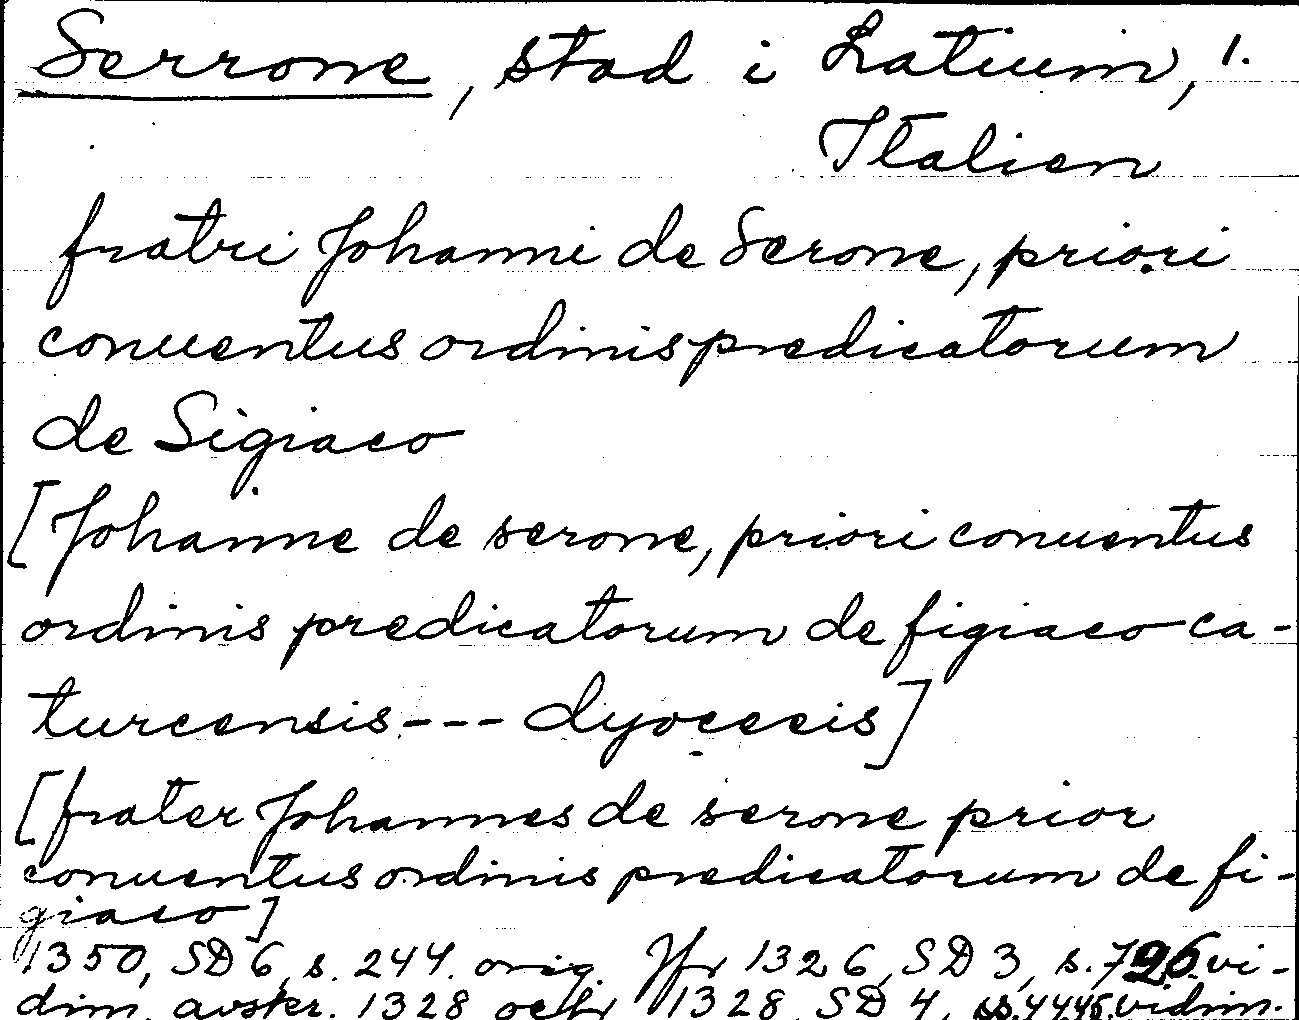 Serrone, stad i Latium, 1.
Italien
fratri Johanni de Serone, priori
conuentus ordinis predicatorum
de Sigiaco
[Johanne de serone, priori conuentus
ordinis predicatorum de figiaco ca-
turcensis --- dyocecis]
[frater Johannes de serone prior
conuentus ordinis predicatorum de fi-
giaco]
1350, SD 6, s. 244. orig. Jfr 1326, SD 3, s. 726. vi-
dim. avskr. 1328 och 1328, SD 4, vidim.